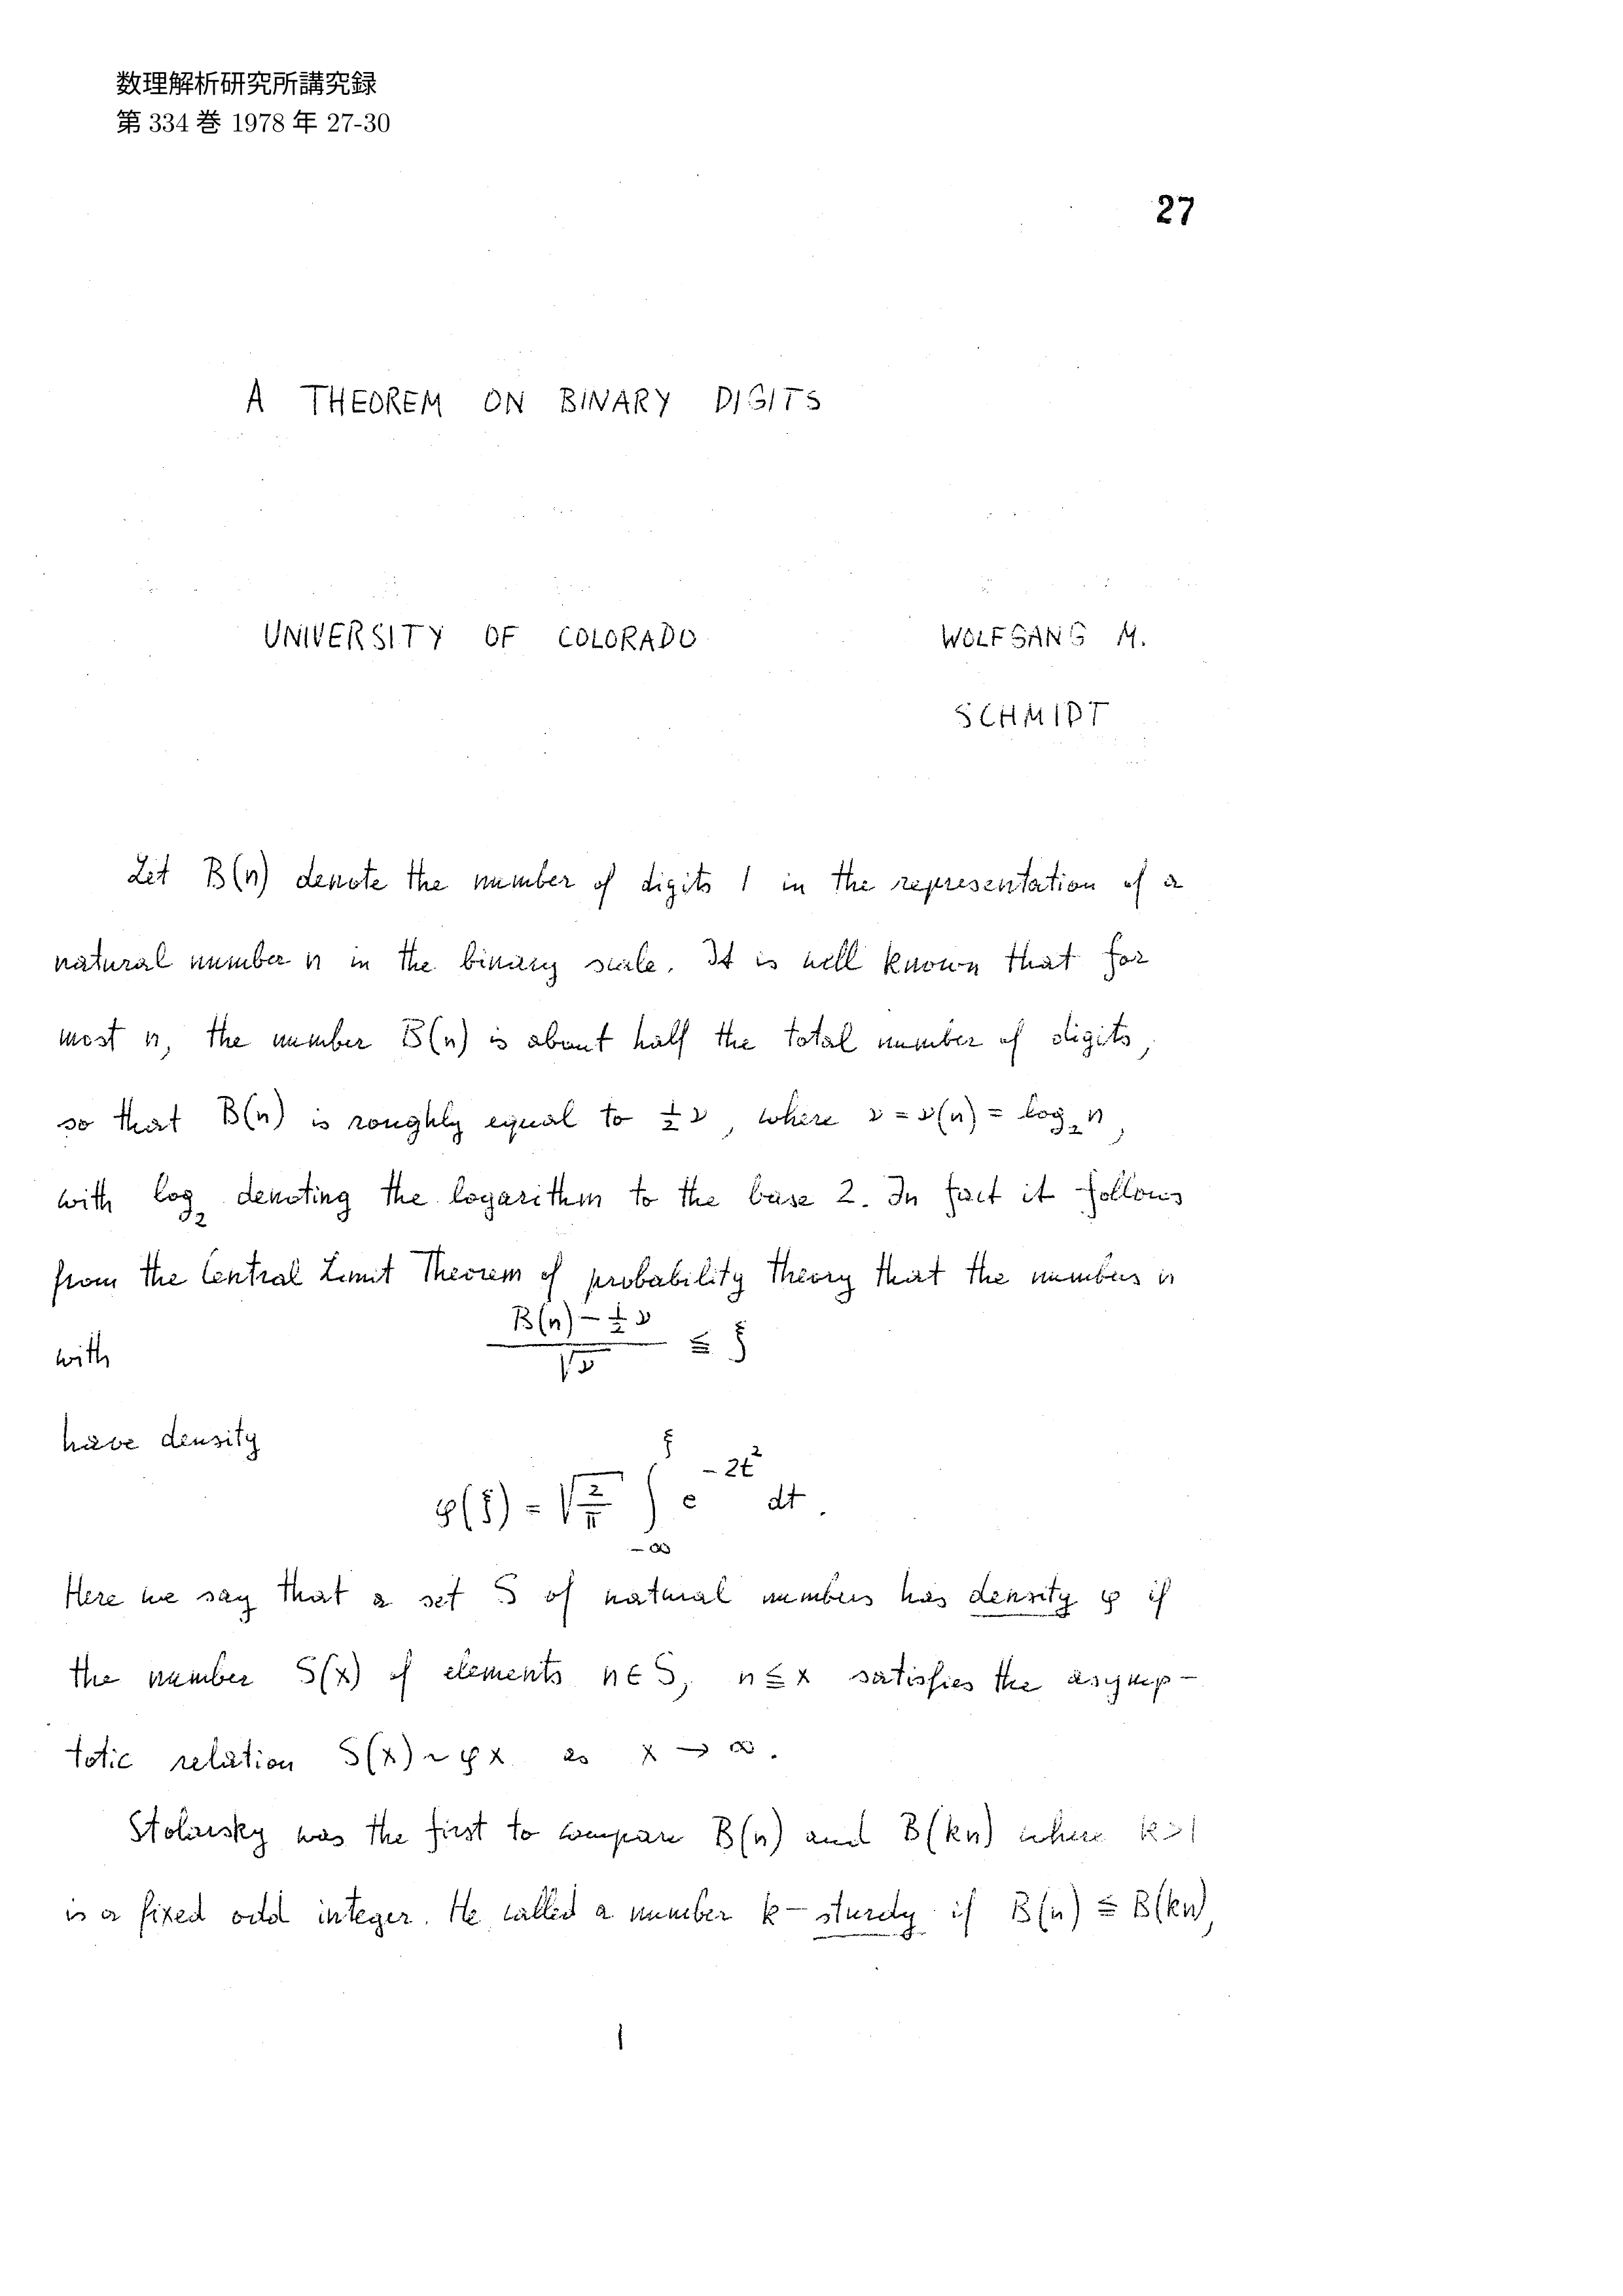 数理解析研究所講究録
第 334 巻 1978 年 27-30
27
A THEOREM ON BINARY DIGITS
UNIVERSITY OF COLORADO WOLFGANG M.
SCHMIDT
Let B(n) denote the number of digits 1 in the representation of a
natural number n in the binary scale. It is well known that for
most n, the number B(n) is about half the total number of digits,
so that B(n) is roughly equal to ½ν, where ν = ν(n) = log₂ n,
with log₂ denoting the logarithm to the base 2. In fact it follows
from the Central Limit Theorem of probability theory that the numbers n
with (B(n) − ½ν)/√ν ≦ ξ
have density
φ(ξ) = √(2/π) ∫_{−∞}^{ξ} e^{−2t²} dt.
Here we say that a set S of natural numbers has density φ if
the number S(x) of elements n ∈ S, n ≦ x satisfies the asymp-
totic relation S(x) ~ φx as x → ∞.
Stolarsky was the first to compare B(n) and B(kn) where k>1
is a fixed odd integer. He called a number k-sturdy if B(n) ≦ B(kn),
1